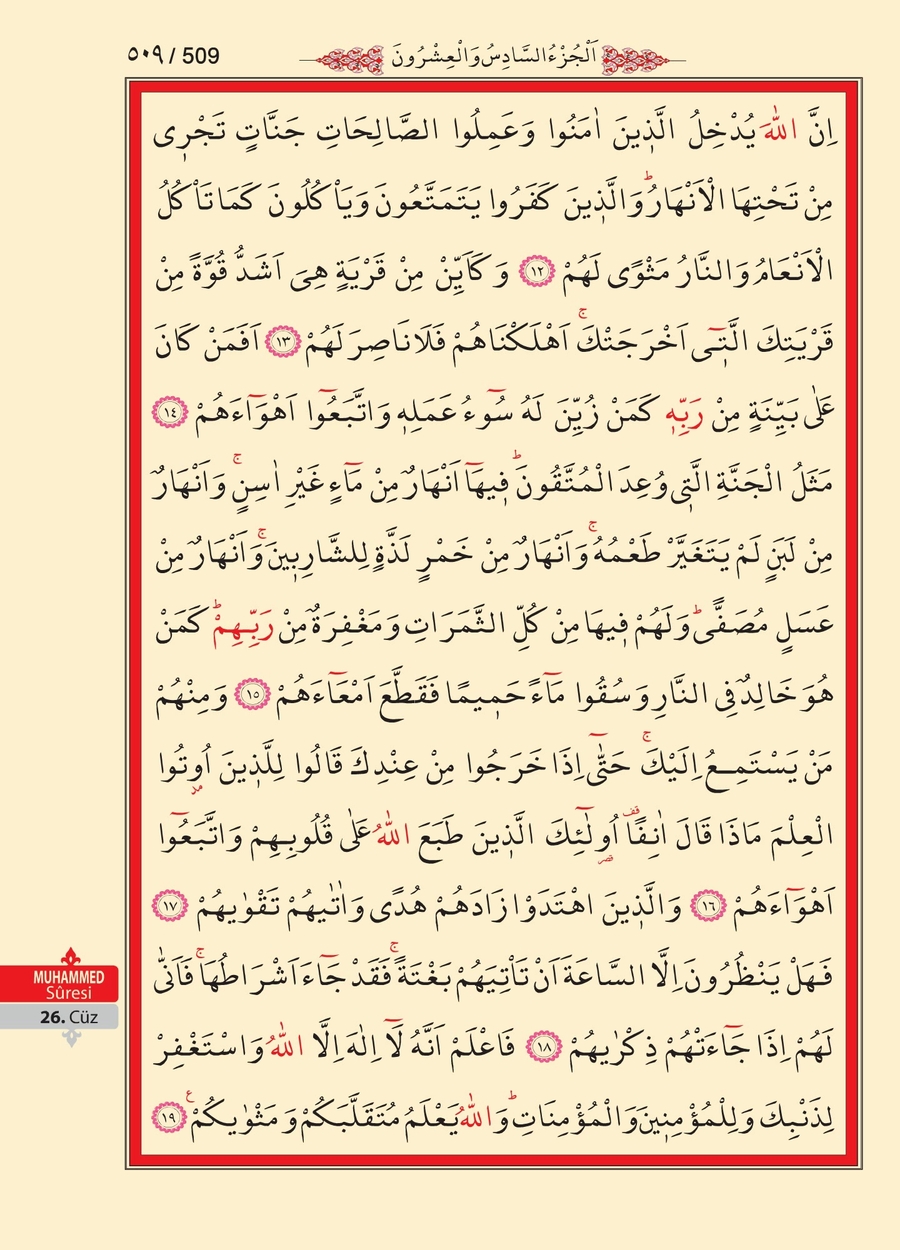 ٥٠٩ / 509
اَلْجُزْءُ السَّادِسُ وَالْعِشْرُونَ
اِنَّ اللّٰهَ يُدْخِلُ الَّذٖينَ اٰمَنُوا وَعَمِلُوا الصَّالِحَاتِ جَنَّاتٍ تَجْرٖى
مِنْ تَحْتِهَا الْاَنْهَارُؕ وَالَّذٖينَ كَفَرُوا يَتَمَتَّعُونَ وَيَاْكُلُونَ كَمَا تَاْكُلُ
الْاَنْعَامُ وَالنَّارُ مَثْوًى لَهُمْ ﴿١٢﴾ وَكَاَيِّنْ مِنْ قَرْيَةٍ هِىَ اَشَدُّ قُوَّةً مِنْ
قَرْيَتِكَ الَّتٖٓى اَخْرَجَتْكَۚ اَهْلَكْنَاهُمْ فَلَا نَاصِرَ لَهُمْ ﴿١٣﴾ اَفَمَنْ كَانَ
عَلٰى بَيِّنَةٍ مِنْ رَبِّهٖ كَمَنْ زُيِّنَ لَهُ سُٓوءُ عَمَلِهٖ وَاتَّبَعُٓوا اَهْوَٓاءَهُمْ ﴿١٤﴾
مَثَلُ الْجَنَّةِ الَّتٖى وُعِدَ الْمُتَّقُونَؕ فٖيهَٓا اَنْهَارٌ مِنْ مَٓاءٍ غَيْرِ اٰسِنٍۚ وَاَنْهَارٌ
مِنْ لَبَنٍ لَمْ يَتَغَيَّرْ طَعْمُهُۚ وَاَنْهَارٌ مِنْ خَمْرٍ لَذَّةٍ لِلشَّارِبٖينَۚ وَاَنْهَارٌ مِنْ
عَسَلٍ مُصَفًّىؕ وَلَهُمْ فٖيهَا مِنْ كُلِّ الثَّمَرَاتِ وَمَغْفِرَةٌ مِنْ رَبِّهِمْؕ كَمَنْ
هُوَ خَالِدٌ فِى النَّارِ وَسُقُوا مَٓاءً حَمٖيمًا فَقَطَّعَ اَمْعَٓاءَهُمْ ﴿١٥﴾ وَمِنْهُمْ
مَنْ يَسْتَمِعُ اِلَيْكَۚ حَتّٰٓى اِذَا خَرَجُوا مِنْ عِنْدِكَ قَالُوا لِلَّذٖينَ اُو۫تُوا
الْعِلْمَ مَاذَا قَالَ اٰنِفًا اُو۬لٰٓئِكَ الَّذٖينَ طَبَعَ اللّٰهُ عَلٰى قُلُوبِهِمْ وَاتَّبَعُٓوا
اَهْوَٓاءَهُمْ ﴿١٦﴾ وَالَّذٖينَ اهْتَدَوْا زَادَهُمْ هُدًى وَاٰتٰيهُمْ تَقْوٰيهُمْ ﴿١٧﴾
فَهَلْ يَنْظُرُونَ اِلَّا السَّاعَةَ اَنْ تَاْتِيَهُمْ بَغْتَةًۚ فَقَدْ جَٓاءَ اَشْرَاطُهَاۚ فَاَنّٰى
لَهُمْ اِذَا جَٓاءَتْهُمْ ذِكْرٰيهُمْ ﴿١٨﴾ فَاعْلَمْ اَنَّهُ لَٓا اِلٰهَ اِلَّا اللّٰهُ وَاسْتَغْفِرْ
لِذَنْبِكَ وَلِلْمُؤْمِنٖينَ وَالْمُؤْمِنَاتِؕ وَاللّٰهُ يَعْلَمُ مُتَقَلَّبَكُمْ وَمَثْوٰيكُمْ ﴿١٩﴾
MUHAMMED
Sûresi
26. Cüz